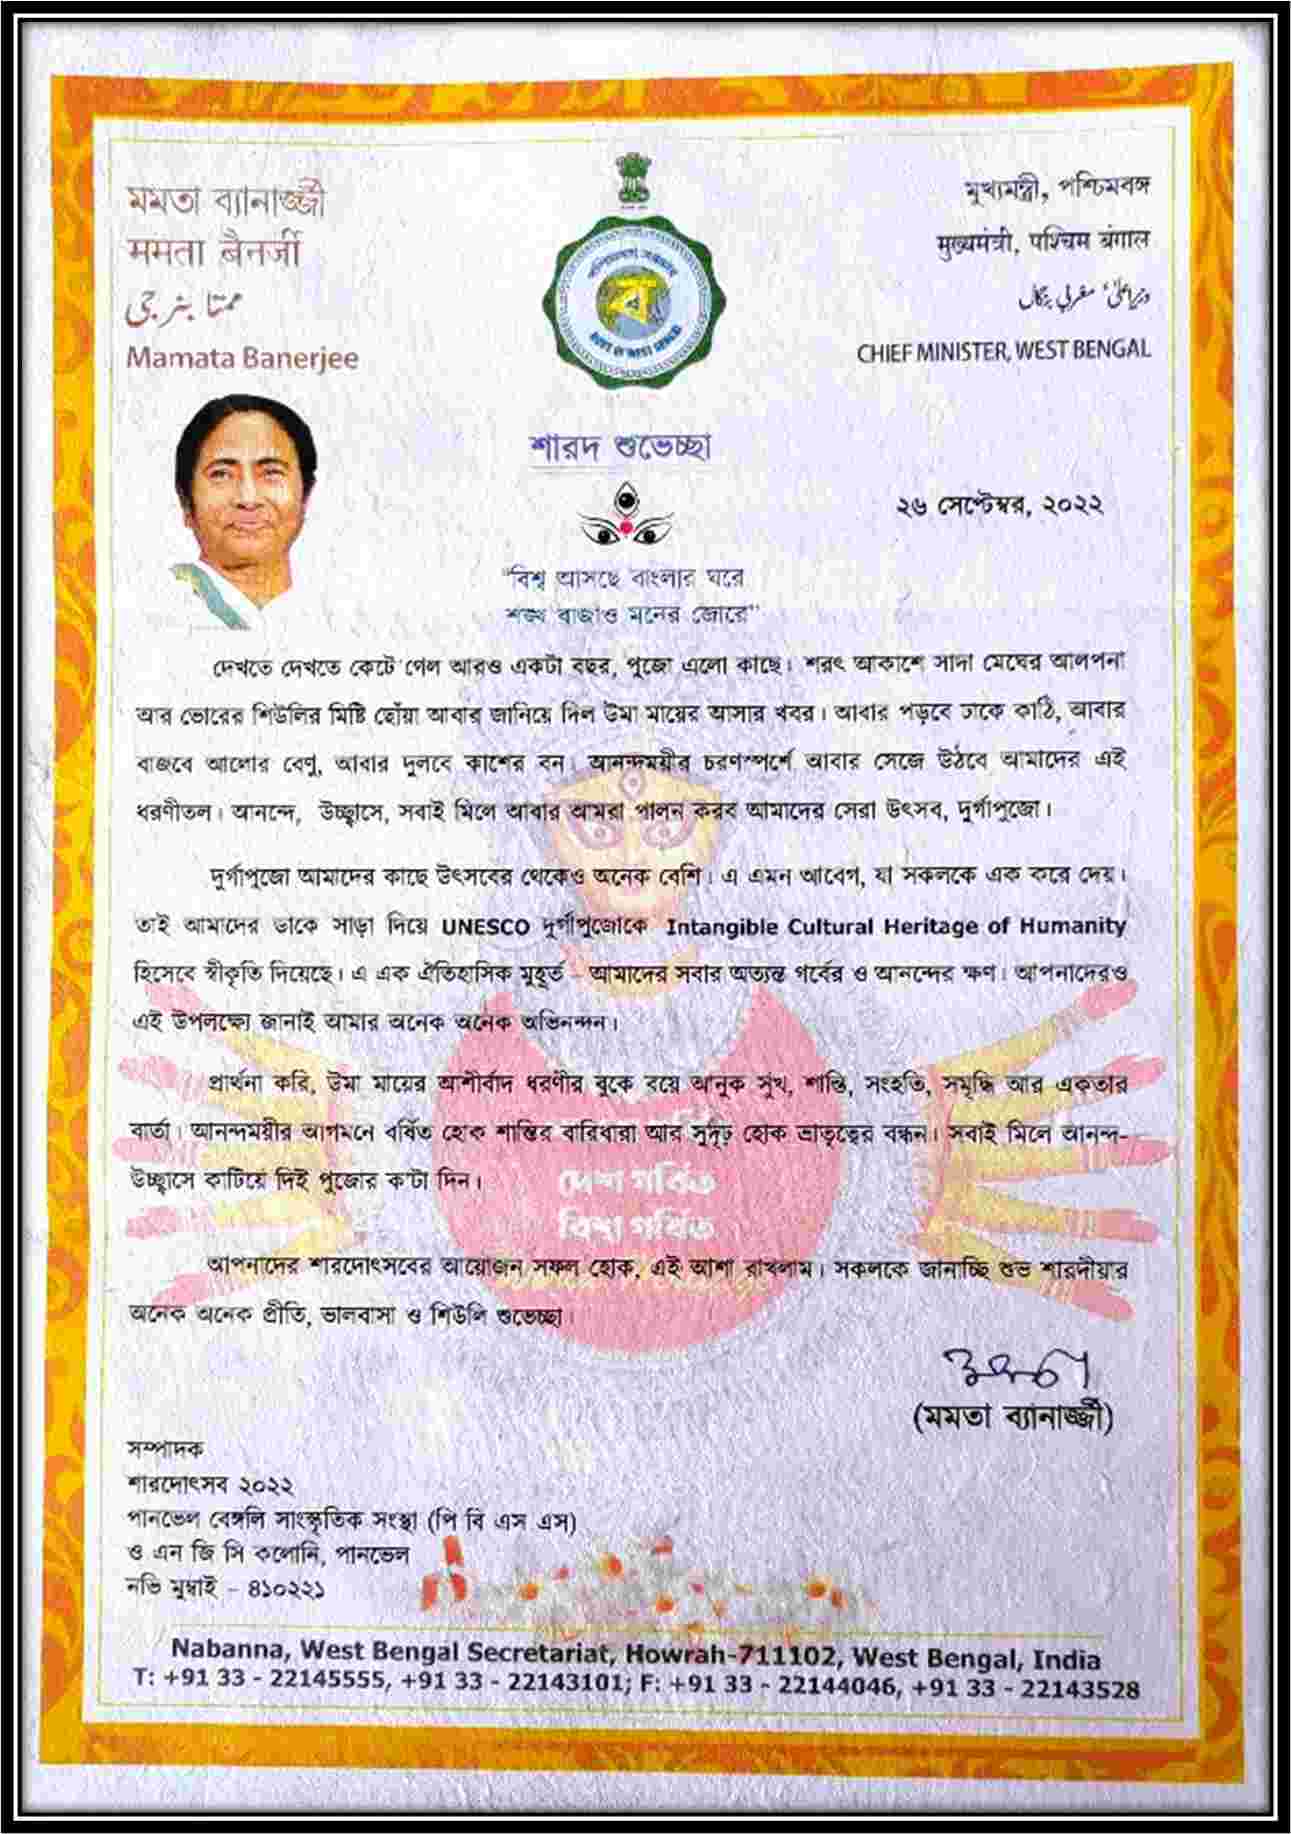 মমতা ব্যানার্জ্জী
ममता बैनर्जी
ممتا بنرجی
Mamata Banerjee
মুখ্যমন্ত্রী, পশ্চিমবঙ্গ
मुख्यमंत्री, पश्चिम बंगाल
وزیراعلیٰ، مغربی بنگال
CHIEF MINISTER, WEST BENGAL
ব
GOVT OF WEST BENGAL
শারদ শুভেচ্ছা
২৬ সেপ্টেম্বর, ২০২২
"বিশ্ব আসছে বাংলার ঘরে
শঙ্খ বাজাও মনের জোরে"
দেখতে দেখতে কেটে গেল আরও একটা বছর, পুজো এলো কাছে। শরৎ আকাশে সাদা মেঘের আলপনা
আর ভোরের শিউলির মিষ্টি ছোঁয়া আবার জানিয়ে দিল উমা মায়ের আসার খবর। আবার পড়বে ঢাকে কাঠি, আবার
বাজবে আলোর বেণু, আবার দুলবে কাশের বন। আনন্দময়ীর চরণস্পর্শে আবার সেজে উঠবে আমাদের এই
ধরণীতল। আনন্দে, উচ্ছ্বাসে, সবাই মিলে আবার আমরা পালন করব আমাদের সেরা উৎসব, দুর্গাপুজো।
দুর্গাপুজো আমাদের কাছে উৎসবের থেকেও অনেক বেশি। এ এমন আবেগ, যা সকলকে এক করে দেয়।
তাই আমাদের ডাকে সাড়া দিয়ে UNESCO দুর্গাপুজোকে Intangible Cultural Heritage of Humanity
হিসেবে স্বীকৃতি দিয়েছে। এ এক ঐতিহাসিক মুহূর্ত – আমাদের সবার অত্যন্ত গর্বের ও আনন্দের ক্ষণ। আপনাদেরও
এই উপলক্ষ্যে জানাই আমার অনেক অনেক অভিনন্দন।
প্রার্থনা করি, উমা মায়ের আশীর্বাদ ধরণীর বুকে বয়ে আনুক সুখ, শান্তি, সংহতি, সমৃদ্ধি আর একতার
বার্তা। আনন্দময়ীর আগমনে বর্ষিত হোক শান্তির বারিধারা আর সুদৃঢ় হোক ভ্রাতৃত্বের বন্ধন। সবাই মিলে আনন্দ-
উচ্ছ্বাসে কাটিয়ে দিই পুজোর ক'টা দিন।
দেশ গর্বিত
বিশ্ব গর্বিত
আপনাদের শারদোৎসবের আয়োজন সফল হোক, এই আশা রাখলাম। সকলকে জানাচ্ছি শুভ শারদীয়ার
অনেক অনেক প্রীতি, ভালবাসা ও শিউলি শুভেচ্ছা।
(মমতা ব্যানার্জ্জী)
সম্পাদক
শারদোৎসব ২০২২
পানভেল বেঙ্গলি সাংস্কৃতিক সংস্থা (পি বি এস এস)
ও এন জি সি কলোনি, পানভেল
নভি মুম্বাই – ৪১০২২১
Nabanna, West Bengal Secretariat, Howrah-711102, West Bengal, India
T: +91 33 - 22145555, +91 33 - 22143101; F: +91 33 - 22144046, +91 33 - 22143528